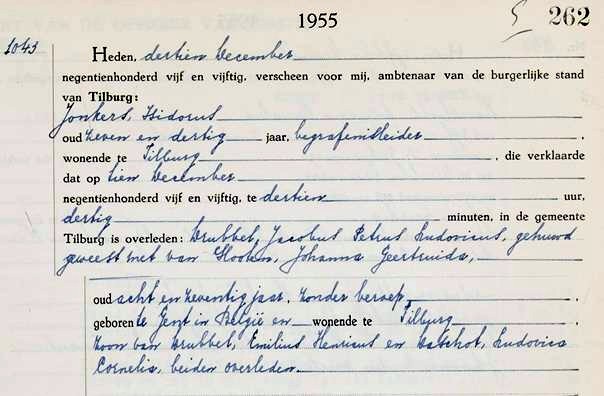 1955
5 262
1043
Heden, dertien December
negentienhonderd vijf en vijftig, verscheen voor mij, ambtenaar van de burgerlijke stand
van Tilburg:
Jonkers, Isidorus
oud zeven en dertig jaar, begrafenisleider,
wonende te Tilburg, die verklaarde
dat op tien December
negentienhonderd vijf en vijftig, te dertien uur,
dertig minuten, in de gemeente
Tilburg is overleden: Drubbel, Jacobus Petrus Ludovicus, gehuwd
geweest met van Slooten, Johanna Geertruida,
oud acht en zeventig jaar, zonder beroep,
geboren te Gent in België en wonende te Tilburg
zoon van Drubbel, Emilius Henricus en Ludovica
Cornelia, beiden overleden.